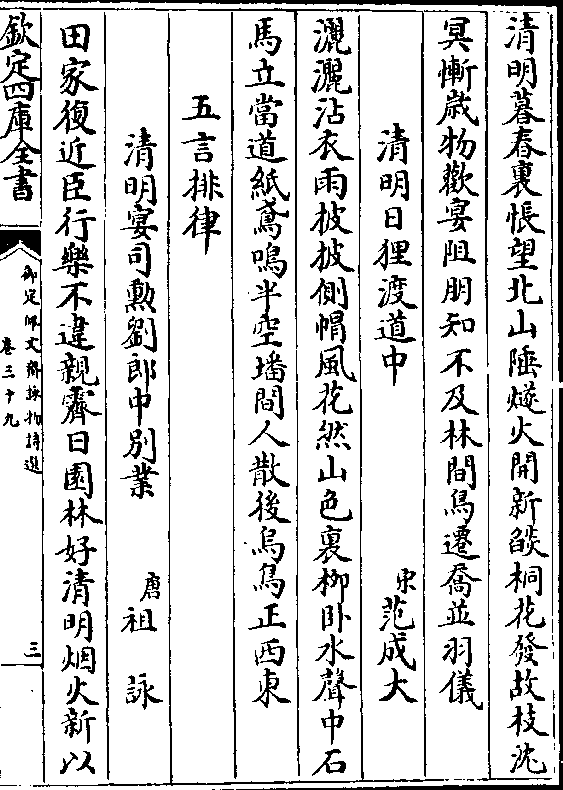 清明暮春裏悵望北山陲燧火開新燄桐花發故枝沈
冥慚歲物歡宴阻朋知不及林間鳥遷喬並羽儀
清明日狸渡道中 宋范成大
灑灑沾衣雨披披側帽風花然山色裏柳卧水聲中石
馬立當道紙鳶鳴半空墦間人散後烏鳥正西東
五言排律
清明宴司勳劉郎中别業 唐祖詠
田家復近臣行樂不違親霽日園林好清明烟火新以
欽定四庫全書
御定佩文齋詠物詩選
卷三十九
三